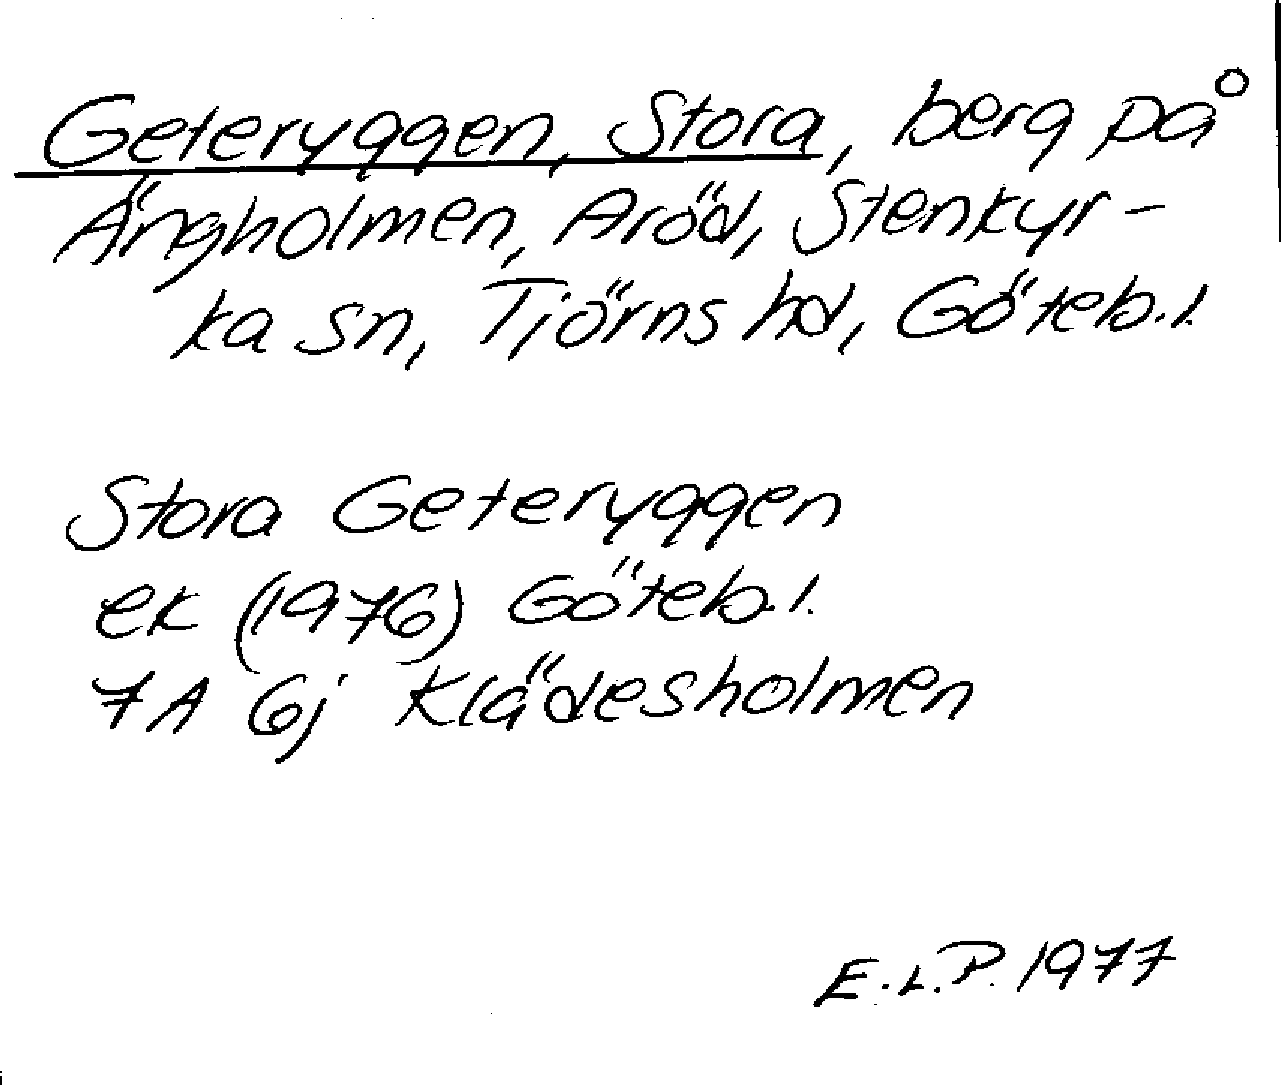 Geteryggen, Stora, berg på
Ängholmen, Aröd, Stenkyr-
ka sn, Tjörns hd, Göteb.l.
Stora Geteryggen
ek (1976) Göteb.l.
7A 6j Klädesholmen
E.L.P. 1977